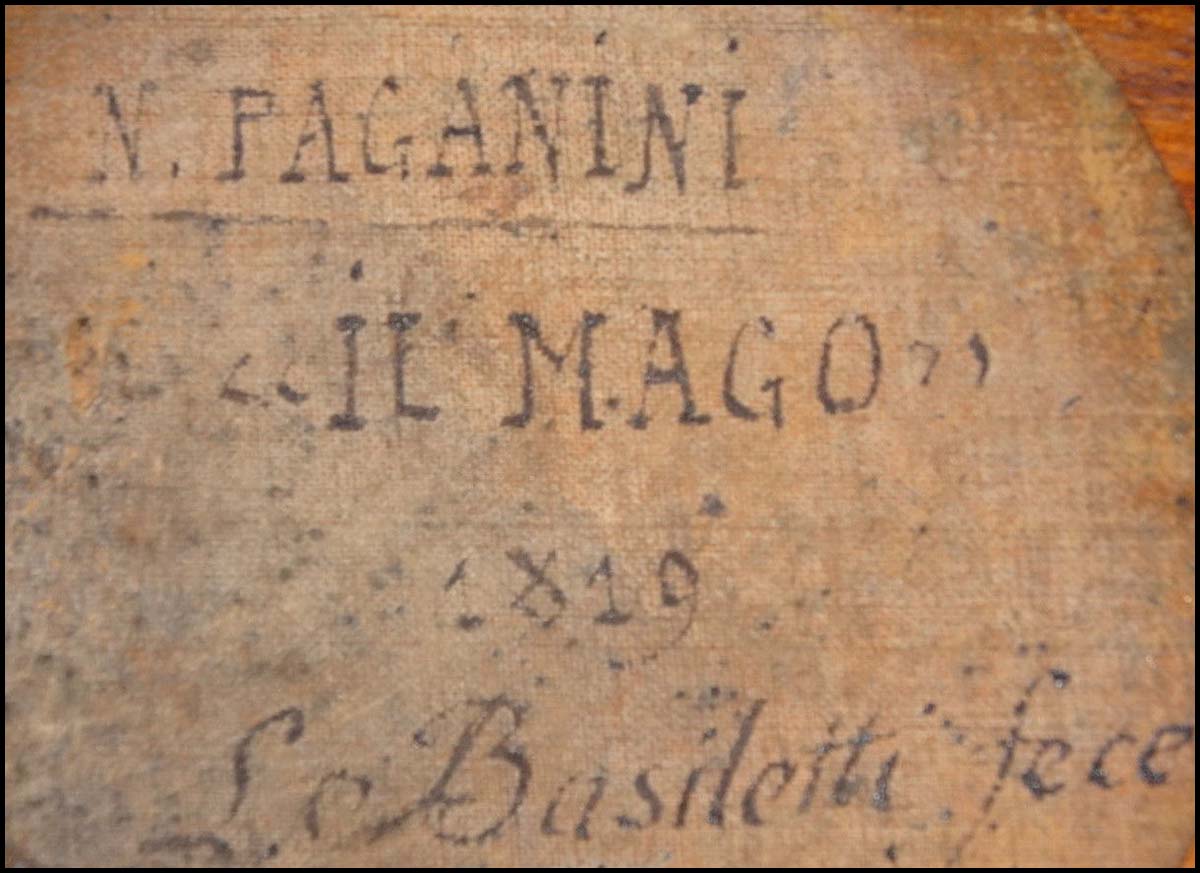 N. PAGANINI
«IL MAGO»
1819
Le Basiletti fece